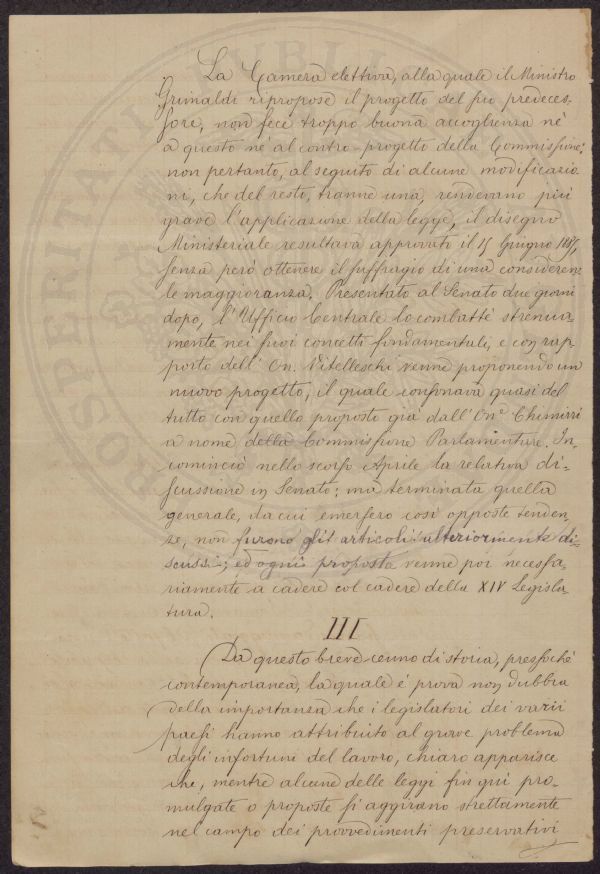 La Camera elettiva, alla quale il Ministro
Grimaldi ripropose il progetto del suo predeces-
sore, non fece troppo buona accoglienza nè
a questo nè al contro-progetto della Commissione:
non pertanto, al seguito di alcune modificazio
ni, che del resto, tranne una, rendevano più
grave l'applicazione della legge, il disegno
Ministeriale resultava approvato il 15 Giugno
senza però ottenere il suffragio di una
le maggioranza. Presentato al Senato due giorni
dopo, l'Ufficio Centrale lo combattè strenua-
mente nei suoi concetti fondamentali, e con rap-
porto dell'On. Vitelleschi venne proponendo un
nuovo progetto, il quale consonava quasi del
tutto con quello proposto già dall'On.e Chimirri
a nome della Commissione Parlamentare. In-
cominciò nello scorso Aprile la relativa di-
scussione in Senato: ma terminata quella
generale, da cui emersero così opposte tenden-
ze, non furono gli articoli ulteriormente di-
scussi; ed ogni proposta venne poi necessa-
riamente a cadere col cadere della XIV Legisla-
tura.
III
Da questo breve cenno di storia, pressochè
contemporanea, la quale è prova non dubbia
della importanza che i legislatori dei varii
paesi hanno attribuito al grave problema
degli infortuni del lavoro, chiaro apparisce
che, mentre alcune delle leggi fin qui pro-
mulgate o proposte si aggirano strettamente
nel campo dei provvedimenti preservativi
PROSPERITATI PUBLI